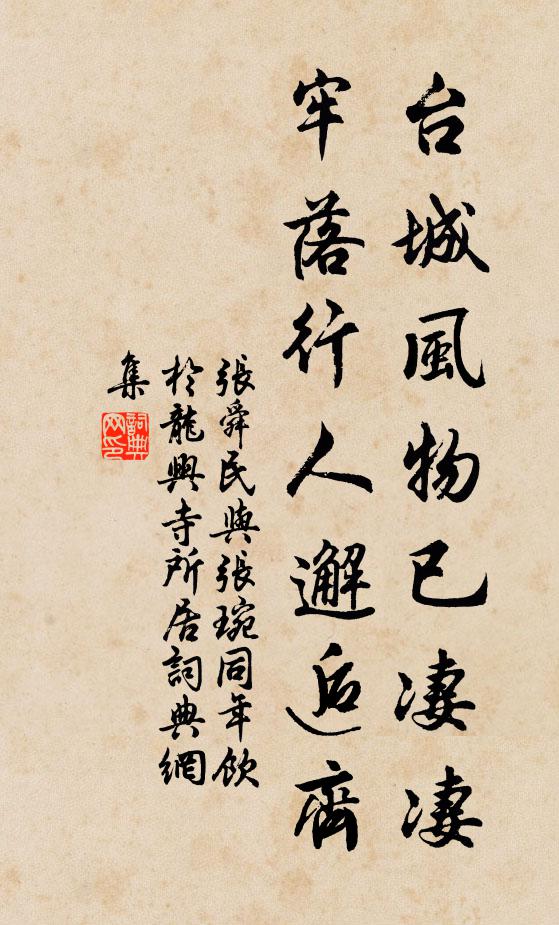 台城風物已凄凄
牢落行人邂逅齊
張舜民與張琬同年飲
於龍興寺所居詞典網
集
詞典網印